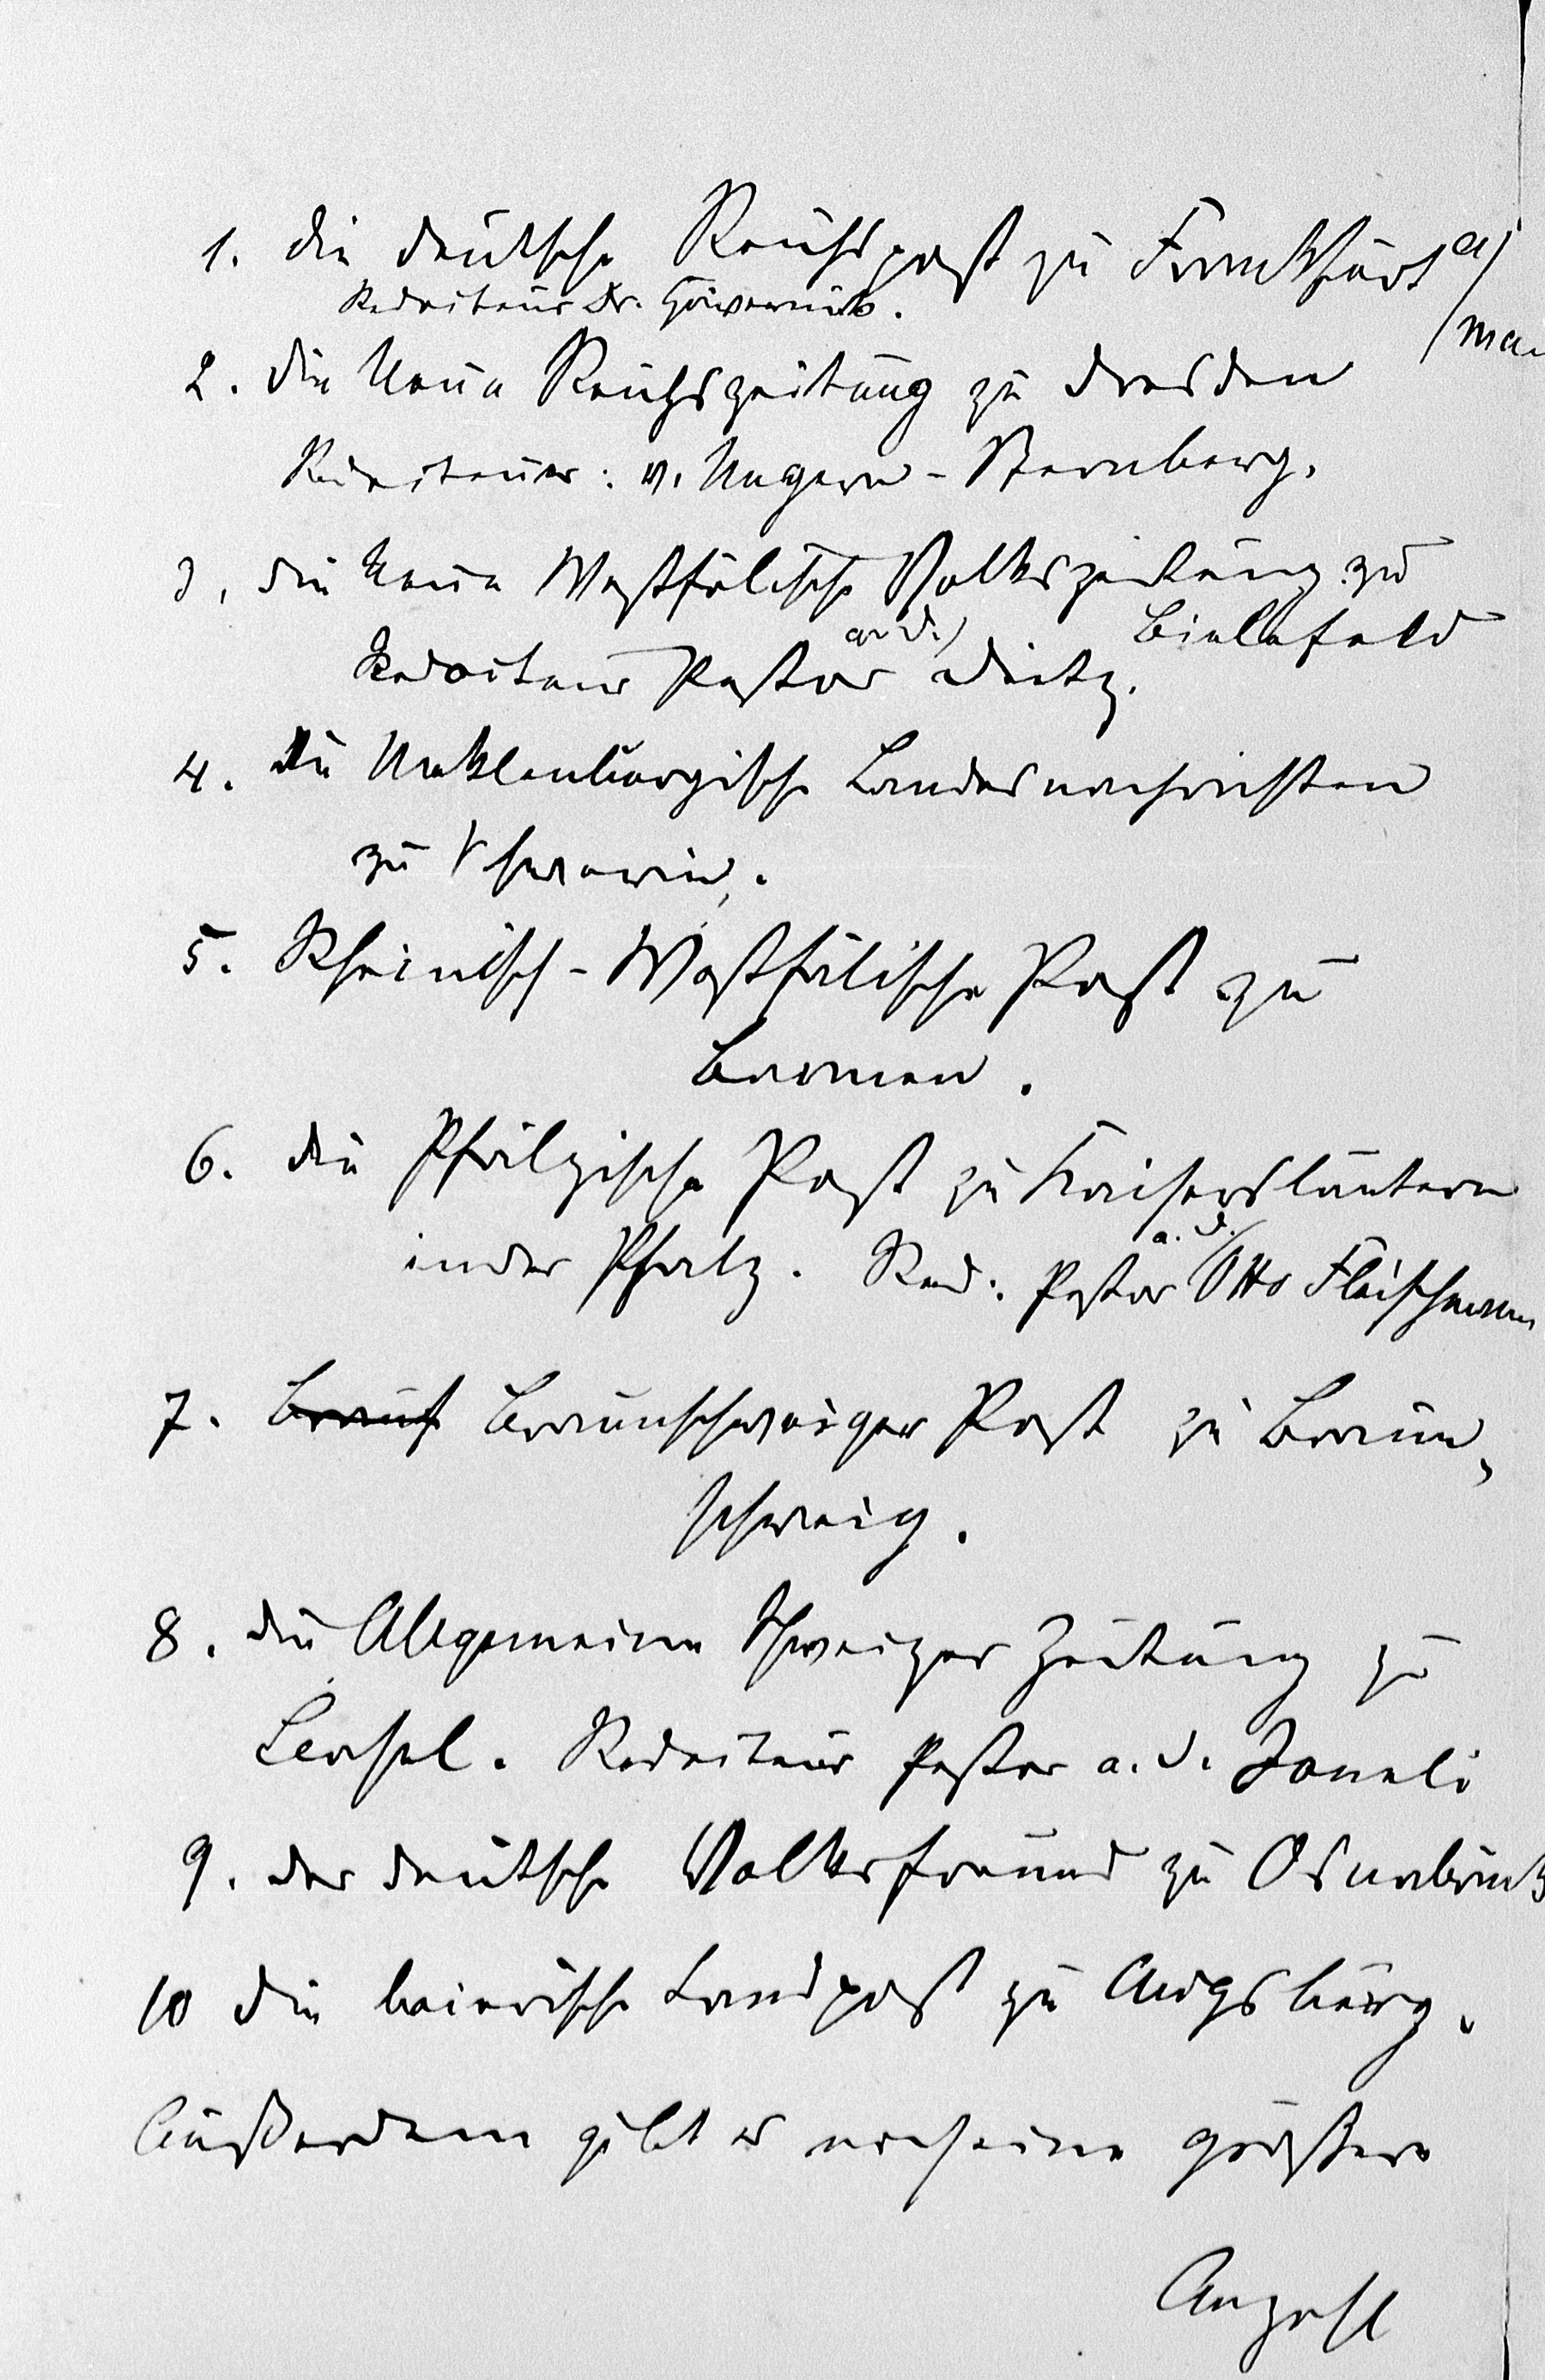 1. die deutsche Reichspost zu Frankfurt a/
/Mai
Redacteur Dr. Hävernick.
2. die Neue Reichszeitung zu Dresden
Redacteur: v. Ungern-Sternberg.
3, die Neue Westfälische Volkszeitung zu
Bielefeld
Redacteur Pastor a. D. Dietz.
4. Die Meklenburgische Landesnachrichten
zu Schwerin.
5. Rheinisch-Westfälische Post zu
Barmen.
6. die Pfälzische Post zu Kaiserslautern
in der Pfalz. Red: Pastor a. D. Otto Fleischmann
7. Braus Braunschweiger Post zu Braun,
schweig.
8. die Allgemeine Schweizer Zeitung zu
Basel. Redacteur Pastor a. D. Joneli
9. der deutsche Volksfreund zu Osnabrück
10 die bairische Landpost zu Augsburg.
Außerdem gibt es noch eine größere
Anzahl